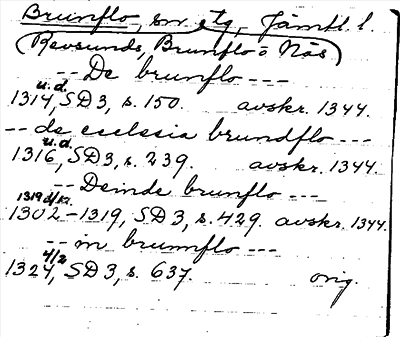 Brunflo, sn, tg, Jämtl. l.
(Revsunds, Brunflo o Näs)
-- De brunflo ---
u.d.
1314, SD 3, s. 150. avskr. 1344.
-- de ecclesia brundflo ---
u.d.
1316, SD 3, s. 239. avskr. 1344.
-- Deinde brunflo ---
1319 4/12.
1302-1319, SD 3, s. 429. avskr. 1344.
-- in brumflo ---
4/2
1324, SD 3, s. 637. orig.